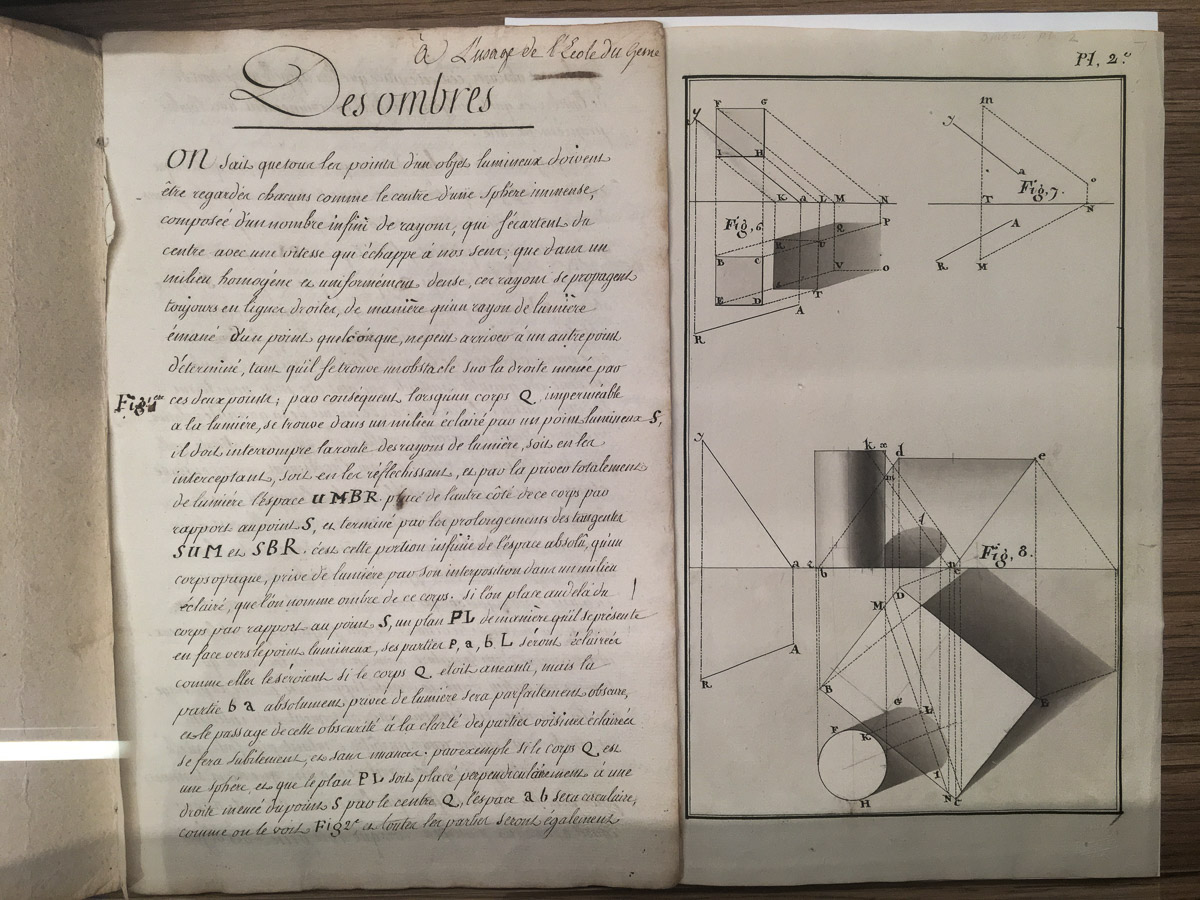 à L'usage de l'Ecole du Genie
Des ombres
On sait que tous les points d'un objet lumineux doivent
être regardés chacuns comme le centre d'une sphère immense,
composée d'un nombre infini de rayons, qui s'écartent du
centre avec une vitesse qui échappe à nos sens; que dans un
milieu homogéne et uniformément dense, ces rayons se propagent
toujours en lignes droites, de manière qu'un rayon de lumière
émané d'un point quelconque, ne peut arriver à un autre point
déterminé, tant qu'il se trouve un obstacle sur la droite menée par
Fig. 1ere
ces deux points; par conséquent lorsqu'un corps Q, imperméable
a la lumière, se trouve dans un milieu éclairé par un point lumineux S,
il doit interrompre la route des rayons de lumière, soit en les
interceptant, soit en les réflechissant, et par la priver totalement
de lumière l'espace UMBR placé de l'autre côté de ce corps par
rapport au point S, et terminé par les prolongements des tangentes
SUM et SBR. c'est cette portion infinie de l'espace absolu, qu'un
corps opaque, prive de lumière par son interposition dans un milieu
éclairé, que l'on nomme ombre de ce corps. Si l'on place au delà du
corps par rapport au point S, un plan PL de manière qu'il se présente
en face vers le point lumineux, ses parties P, a, b L seront éclairées
comme elles le seroient si le corps Q etoit aneanti, mais la
partie b a absolument privée de lumiere sera parfaitement obscure,
et le passage de cette obscurité à la clarté des parties voisines éclairées
se fera subitement, et sans nuances. par exemple si le corps Q est
une sphére, et que le plan PL soit placé perpendiculairement à une
droite menée du point S par le centre Q, l'espace a b sera circulaire,
comme on le voit Fig 2e et toutes les parties seront également
Pl, 2e.
F G
y
I H
K a L M N
Fig, 6.
P
Q
R U
B C
V O
S
T
E D
A
R
m
y
a
Fig, 7.
o
T N
A
R M
y
k. æ d e
m
f
a b n c
Fig, 8.
D
M
A
R
B E
G L
F K
I
H N C